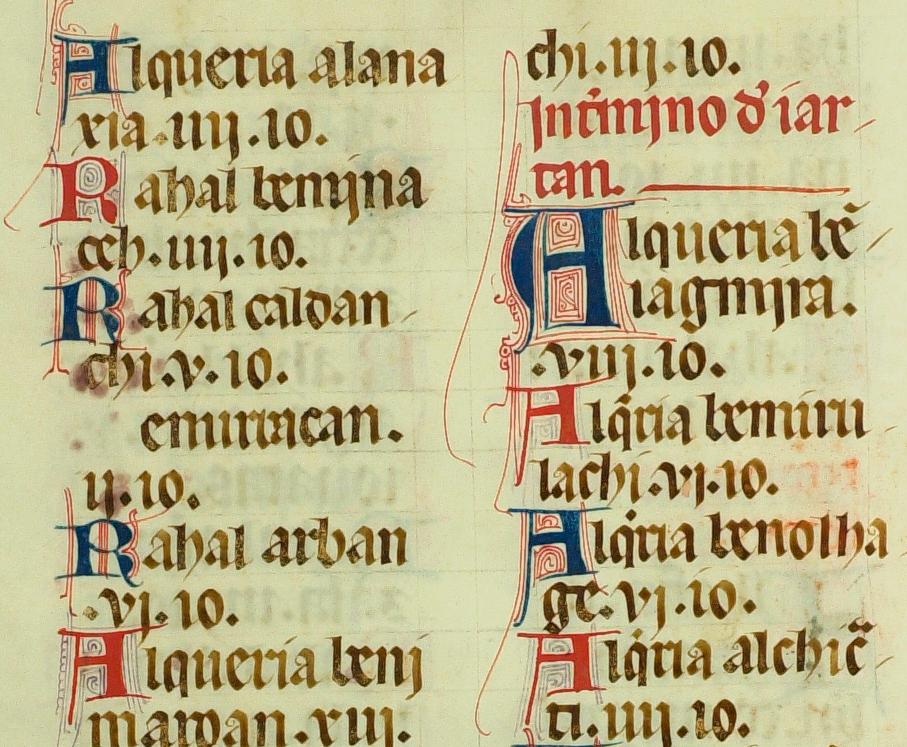 Alqueria alana
xia .iiij .io.
Rahal benijna
ceh .iiij .io.
Rahal caldan
chi .v. io.
emirracan.
ij. io.
Rahal arban
.vj. io.
Alqueria benj
maroan .xiij.
chi .iij .io.
Int̃mino d iar
tan.
Alqueria bẽ
iagmira.
.viij. io.
Alq̃ria bemiru
lachi .vj. io.
Alq̃ria benotha
ge .vj. io.
Alq̃ria alchic̃
ti .iiij. io.